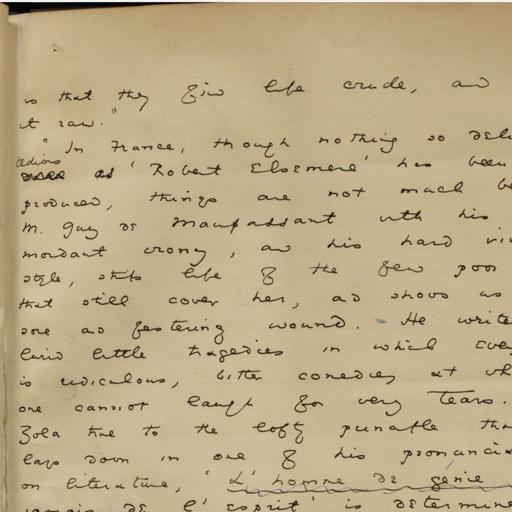 is that they find life crude, and
it raw."
"In France, though nothing so deli
tedious
as 'Robert Elsmere' has been
produced, things are not much be
M. Guy de Maupassant with his
mordant irony, and his hard viv
style, strips life of the few poor
that still cover her, and shows us
sore and festering wound. He write
lurid little tragedies in which ever
is ridiculous, bitter comedies at wh
one cannot laugh for very tears.
Zola true to the lofty principle tha
lays down in one of his pronuncia
on literature, 'L'homme de génie
jamais de l'esprit' is determine